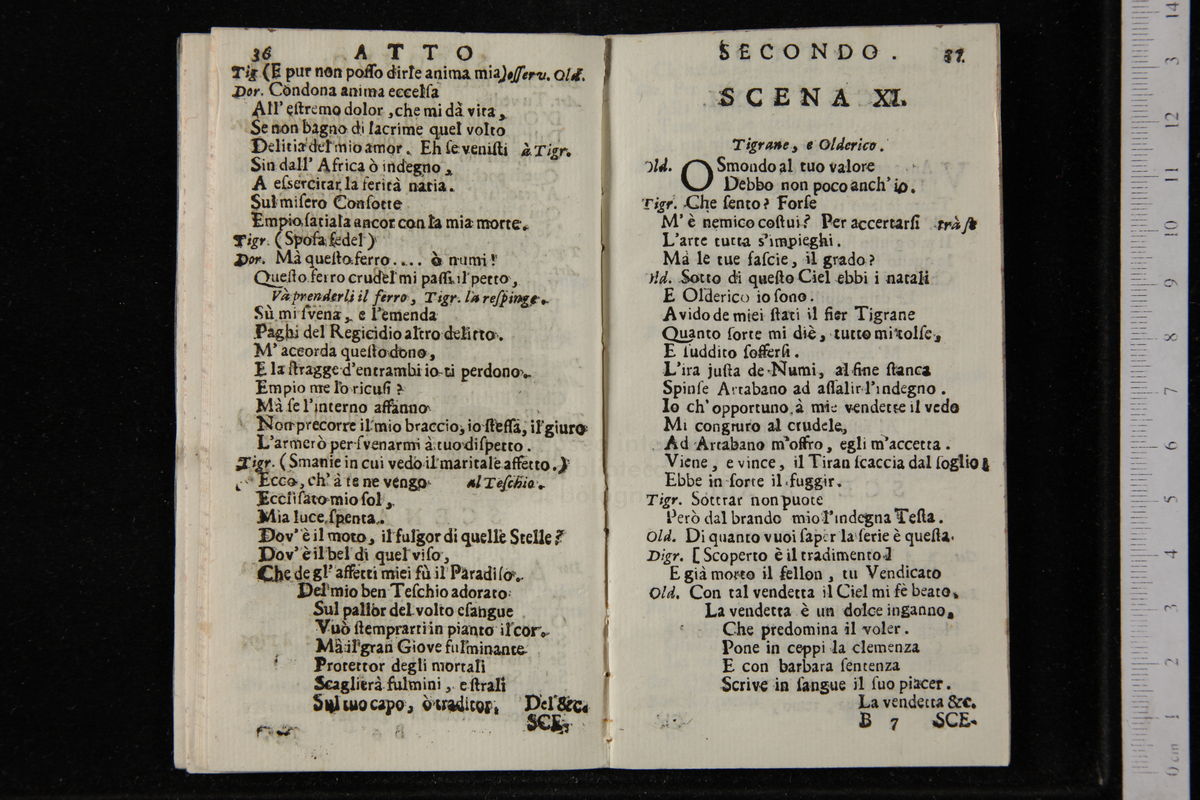 36 ATTO
Tig (E pur non posso dirle anima mia) osserv. Old.
Dor. Condona anima eccelsa
All' estremo dolor, che mi dà vita,
Se non bagno di lacrime quel volto
Delitia del mio amor. Eh se venisti à Tigr.
Sin dall' Africa ò indegno,
A essercitar la ferità natia.
Sul misero Consorte
Empio satiala ancor con la mia morte.
Tigr. (Sposa fedel)
Dor. Mà questo ferro.... ò numi!
Questo ferro crudel mi passi il petto,
Và prenderli il ferro, Tigr. la respinge.
Sù mi svena, e l'emenda
Paghi del Regicidio altro delitto.
M' accorda questo dono,
E la stragge d'entrambi io ti perdono.
Empio me lo ricusi?
Mà se l'interno affanno
Non precorre il mio braccio, io stessa, il giuro
L'armerò per svenarmi à tuo dispetto.
Tigr. (Smanie in cui vedo il maritale affetto.)
Ecco, ch' à te ne vengo al Teschio.
Ecclisato mio sol,
Mia luce spenta.
Dov' è il moto, il fulgor di quelle Stelle?
Dov' è il bel di quel viso,
Che degl' affetti miei fù il Paradiso.
Del mio ben Teschio adorato
Sul pallor del volto esangue
Vuò stemprarti in pianto il cor.
Mà il gran Giove fulminante
Protettor degli mortali
Scaglierà fulmini, e strali
Sul tuo capo, ò traditor. Del &c.
SCE-
SECONDO. 37.
SCENA XI.
Tigrane, e Olderico.
Old. OSmondo al tuo valore
Debbo non poco anch' io.
Tigr. Che sento? Forse
M' è nemico costui? Per accertarsi trà se
L'arte tutta s'impieghi.
Ma le tue fascie, il grado?
Old. Sotto di questo Ciel ebbi i natali
E Olderico io sono.
Avido de miei stati il fier Tigrane
Quanto sorte mi diè, tutto mi tolse,
E suddito soffersi.
L'ira justa de Numi, al fine stanca
Spinse Artabano ad assalir l'indegno.
Io ch' opportuno à mie vendette il vedo
Mi congiuro al crudele,
Ad Artabano m'offro, egli m'accetta.
Viene, e vince, il Tiran scaccia dal soglio
Ebbe in sorte il fuggir.
Tigr. Sottrar non puote
Però dal brando mio l'indegna Testa.
Old. Di quanto vuoi saper la serie è questa.
Digr. [Scoperto è il tradimento]
E già morto il fellon, tu Vendicato
Old. Con tal vendetta il Ciel mi fè beato.
La vendetta è un dolce inganno,
Che predomina il voler.
Pone in ceppi la clemenza
E con barbara sentenza
Scrive in sangue il suo piacer.
La vendetta &c.
B 7 SCE-